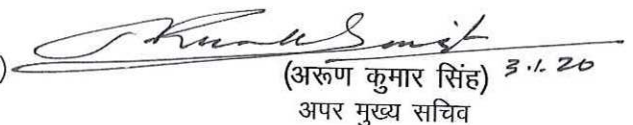 )
(अरूण कुमार सिंह) 3.1.20
अपर मुख्य सचिव